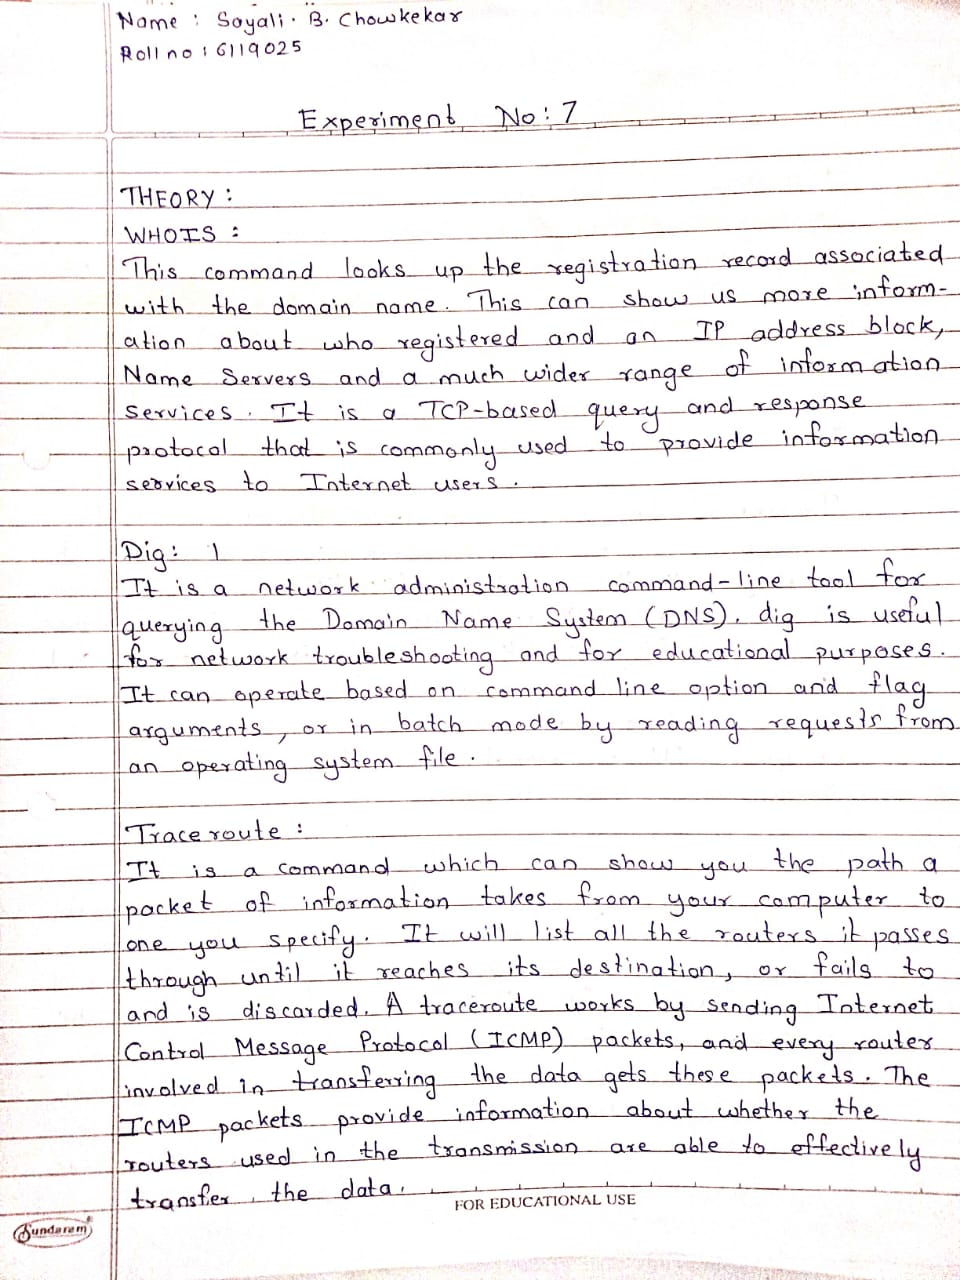 Name : Sayali. B. Chowkekar
Roll no : 6119025
Experiment No: 7
THEORY :
WHOIS :
This command looks up the registration record associated
with the domain name. This can show us more inform-
ation about who registered and an IP address block,
Name Servers and a much wider range of information
services. It is a TCP-based query and response
protocol that is commonly used to provide information
services to Internet users.
Dig: 1
It is a network administration command-line tool for
querying the Domain Name System (DNS). dig is useful
for network troubleshooting and for educational purposes.
It can operate based on command line option and flag
arguments, or in batch mode by reading requests from
an operating system file.
Traceroute :
It is a command which can show you the path a
packet of information takes from your computer to
one you specify. It will list all the routers it passes
through until it reaches its destination, or fails to
and is discarded. A traceroute works by sending Internet
Control Message Protocol (ICMP) packets, and every router
involved in transferring the data gets these packets. The
ICMP packets provide information about whether the
routers used in the transmission are able to effectively
transfer the data.
FOR EDUCATIONAL USE
Sundaram